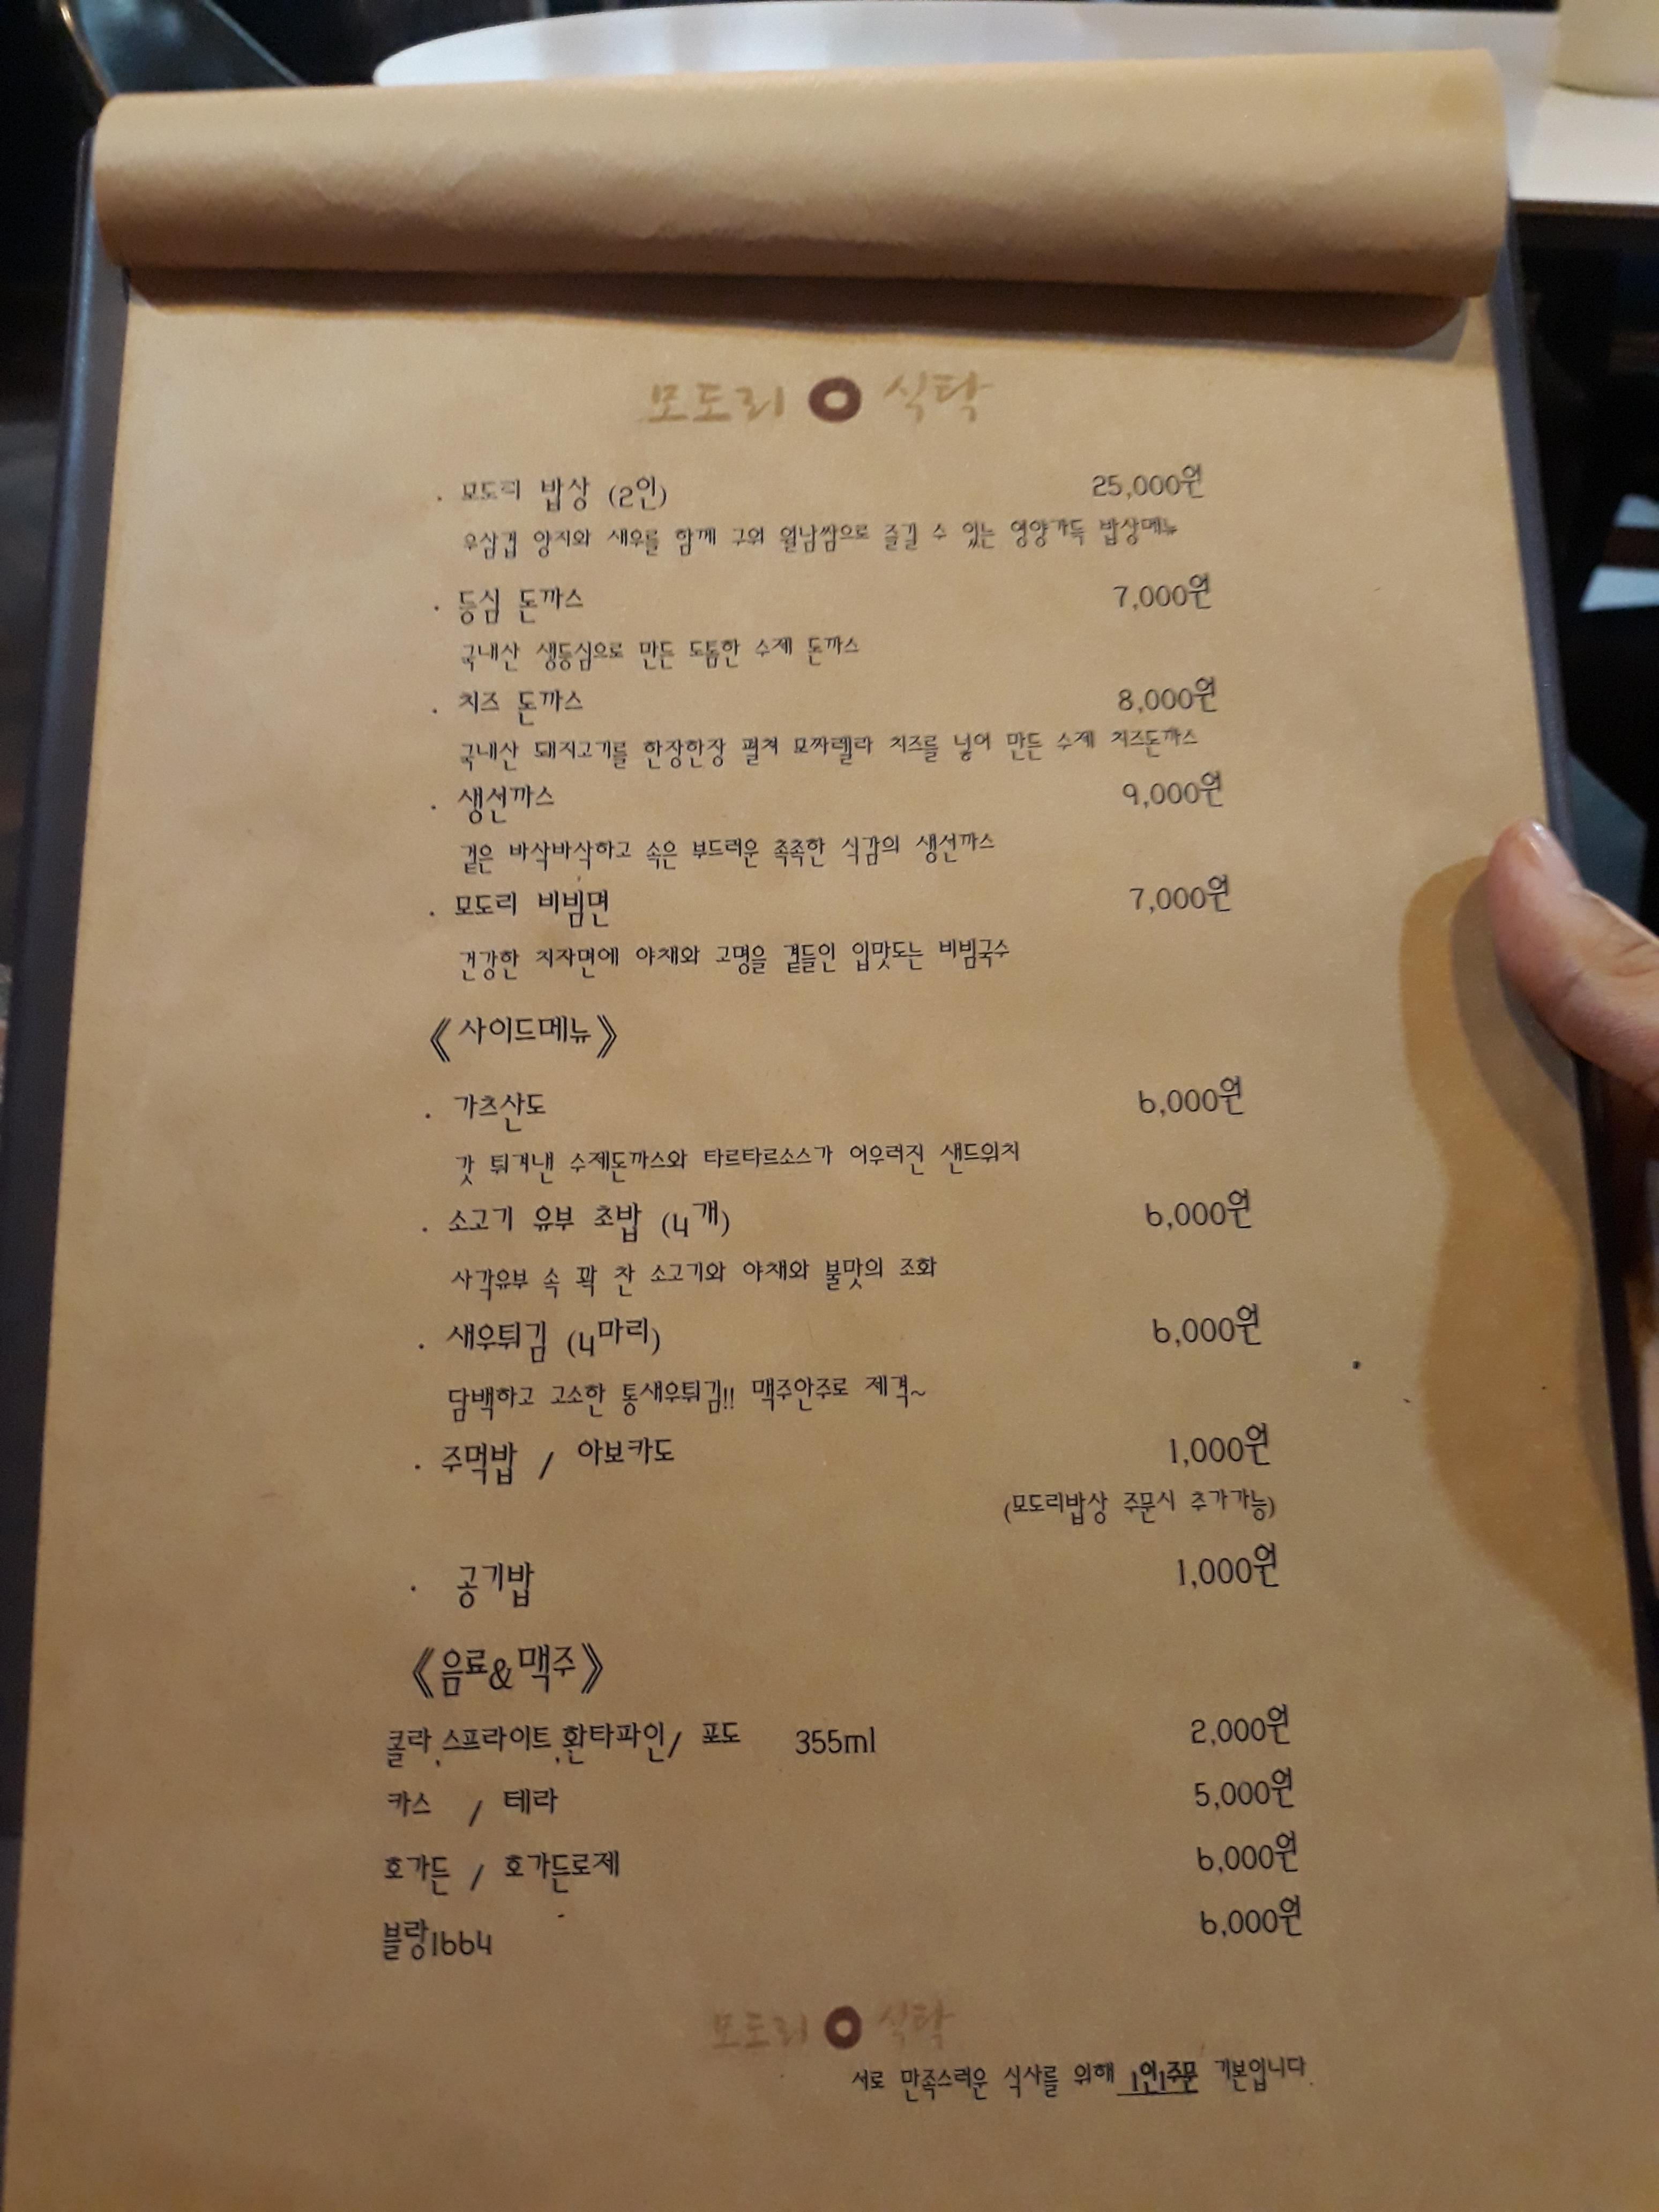 모도리 식탁
· 모도리 밥상 (2인) 25,000원
우삼겹 양지와 새우를 함께 구워 월남쌈으로 즐길 수 있는 영양가득 밥상메뉴
· 등심 돈까스 7,000원
국내산 생등심으로 만든 도톰한 수제 돈까스
· 치즈 돈까스 8,000원
국내산 돼지고기를 한장한장 펼쳐 모짜렐라 치즈를 넣어 만든 수제 치즈돈까스
· 생선까스 9,000원
겉은 바삭바삭하고 속은 부드러운 촉촉한 식감의 생선까스
· 모도리 비빔면 7,000원
건강한 치자면에 야채와 고명을 곁들인 입맛도는 비빔국수
《사이드메뉴》
· 가츠산도 6,000원
갓 튀겨낸 수제돈까스와 타르타르소스가 어우러진 샌드위치
· 소고기 유부 초밥 (4개) 6,000원
사각유부 속 꽉 찬 소고기와 야채와 불맛의 조화
· 새우튀김 (4마리) 6,000원
담백하고 고소한 통새우튀김!! 맥주안주로 제격~
· 주먹밥 / 아보카도 1,000원
(모도리밥상 주문시 추가가능)
· 공기밥 1,000원
《음료&맥주》
콜라,스프라이트,환타파인/ 포도 355ml 2,000원
카스 / 테라 5,000원
호가든 / 호가든로제 6,000원
블랑1664 6,000원
모도리 식탁
서로 만족스러운 식사를 위해 1인1주문 기본입니다.